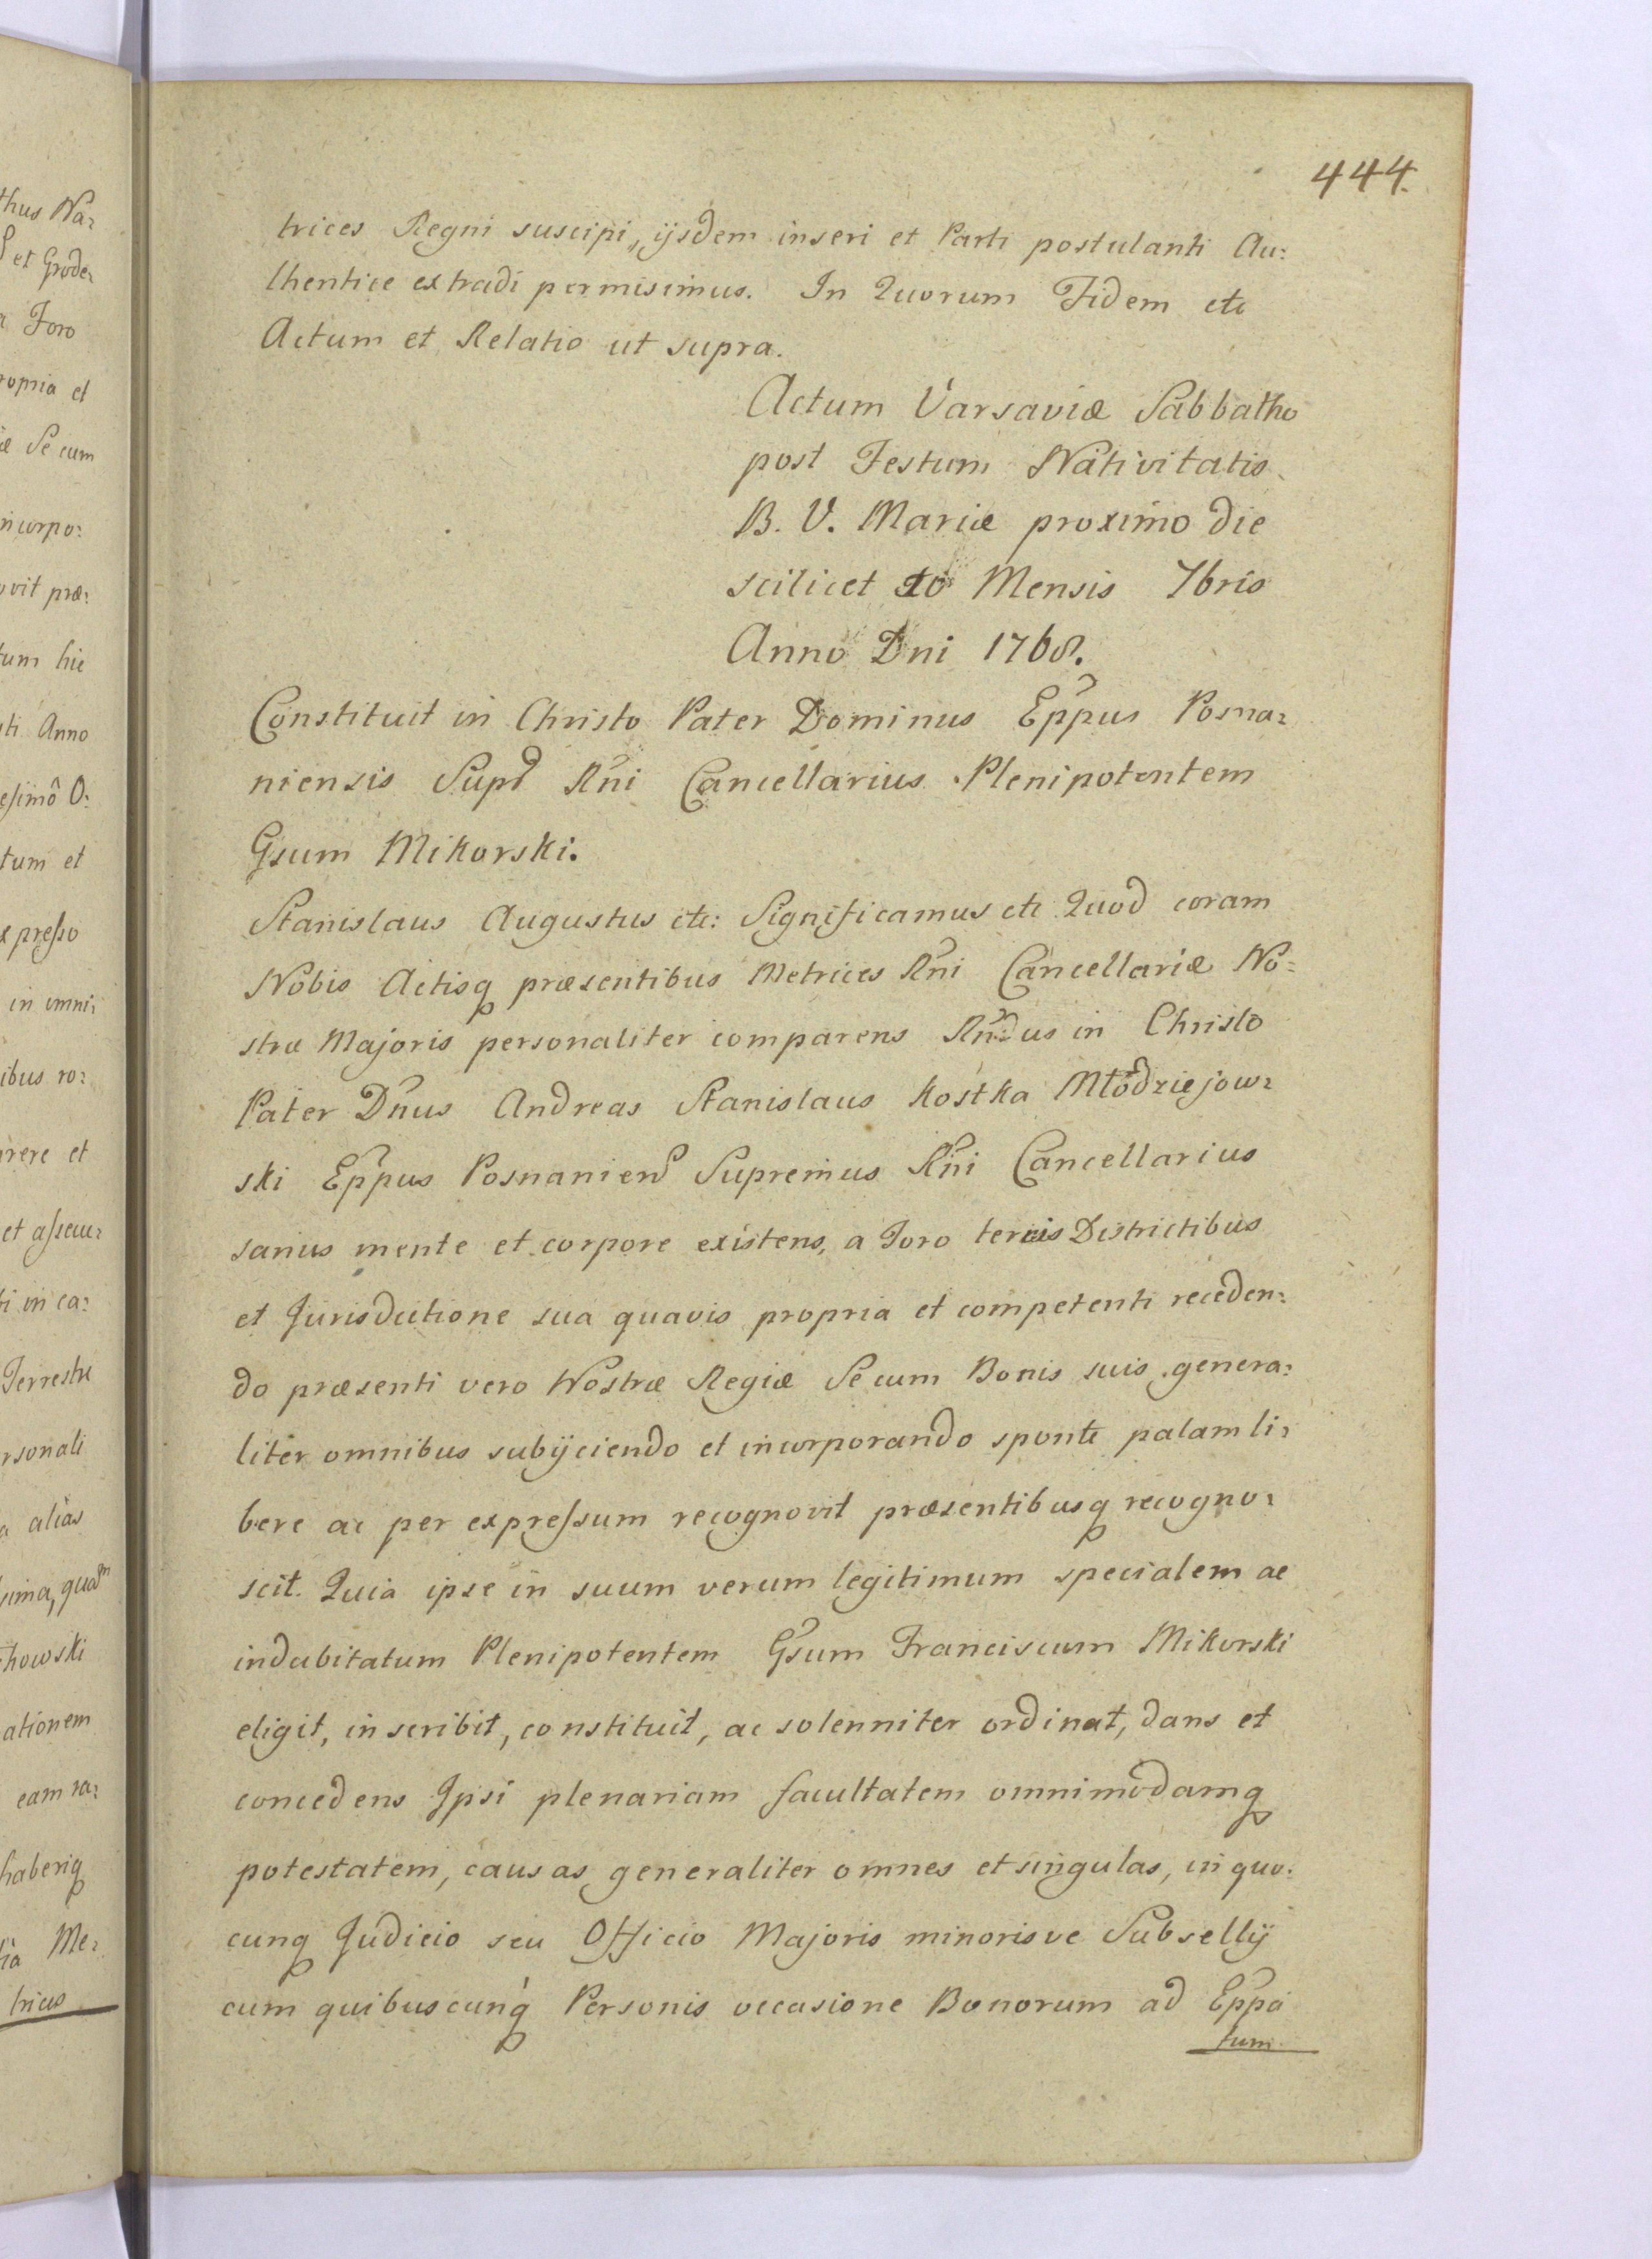 444.
trices Regni suscipi, ijsdem inseri et Parti postulanti Au:
thentice extradi permisimus. In Quorum Fidem etc
Actum et Relatio ut supra.
Actum Varsaviæ Sabbatho
post Festum Nativitatis
B. V. Mariæ proximo die
scilicet 10 Mensis 7bris
Anno Dni 1768.
Constituit in Christo Pater Dominus Eppus Posna:
niensis Supr Rni Cancellarius Plenipotentem
Gsum Mikorski.
Stanislaus Augustus etc: Significamus etc Quod coram
Nobis Actisq præsentibus Metrices Rni Cancellariæ No:
stræ Majoris personaliter comparens Rndus in Christo
Pater Dnus Andreas Stanislaus Kostka Młodziejow:
ski Eppus Posnaniens Supremus Rni Cancellarius
sanus mente et corpore existens, a Foro terris Districtibus
et Jurisdictione sua quavis propria et competenti receden:
do præsenti vero Nostræ Regiæ Se cum Bonis suis genera:
liter omnibus subijciendo et incorporando sponte palam li:
bere ac per expressum recognovit præsentibusq recogno:
scit. Quia ipse in suum verum legitimum specialem ac
indubitatum Plenipotentem Gsum Franciscum Mikorski
eligit, inscribit, constituit, ac solenniter ordinat, dans et
concedens Ipsi plenariam facultatem omnimodamq
potestatem, causas generaliter omnes et singulas, in quo:
cunq Judicio seu Officio Majoris minorisve Subsellij
cum quibuscunq Personis occasione Bonorum ad Eppa
tum
thus Na:
et Grode:
Foro
ropria et
æ Se cum
ncorpo:
ovit præ:
tum hic
ti Anno
esimô O:
tum et
xpresso
in omni:
ibus ro:
rere et
et assecu:
ti in ca:
Terrestre
rsonali
alias
sima, quam
howski
ationem
eam ra:
haberiq
Me:
trices